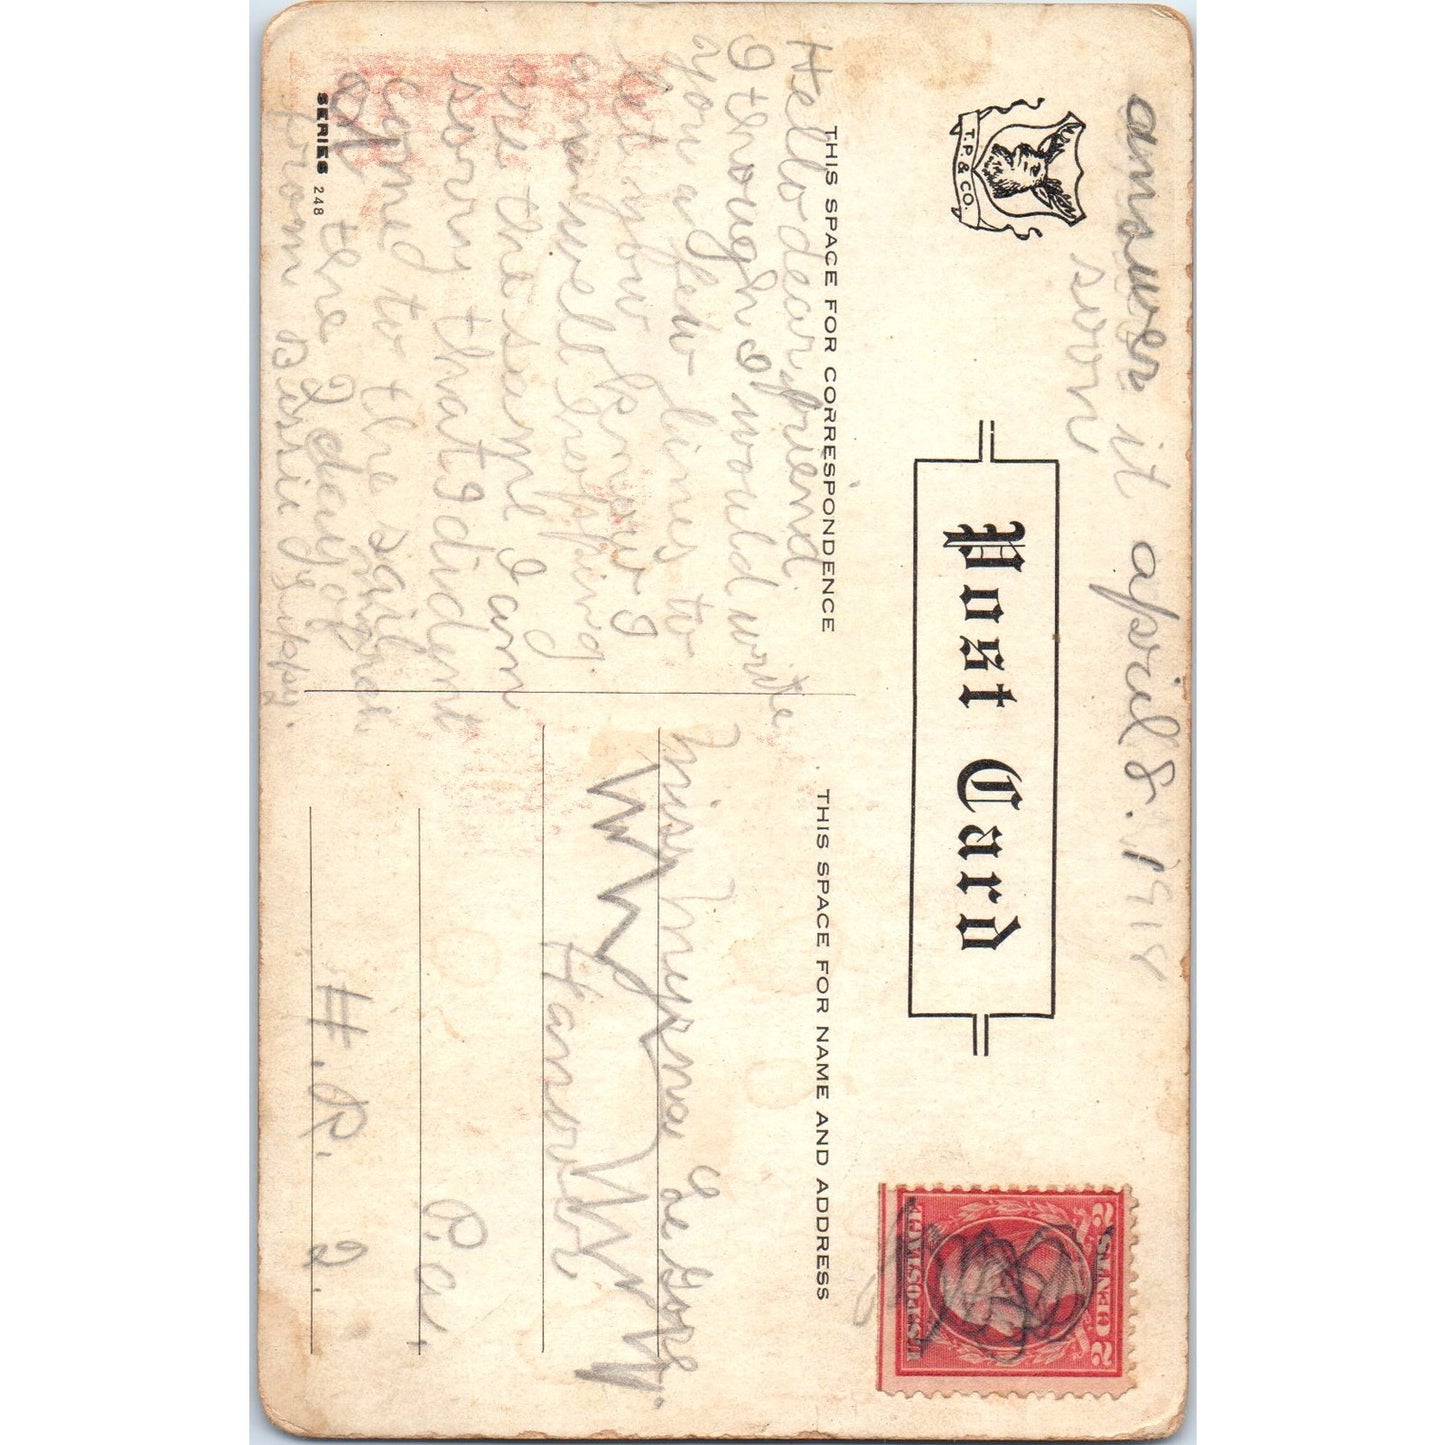 answer it april 8. 1918
soon
T.P. & CO.
Post Card
THIS SPACE FOR CORRESPONDENCE
Hello dear friend
I though I would write
you a few lines to
let you know I
am well hopping
are the same I am
sorry that I dident
come to the sail
the 7 day of
from Bessie
SERIES 248
THIS SPACE FOR NAME AND ADDRESS
Miss Myrna
Hanover
Pa.
H. R. 2.
2 CENTS 2
U.S. POSTAGE